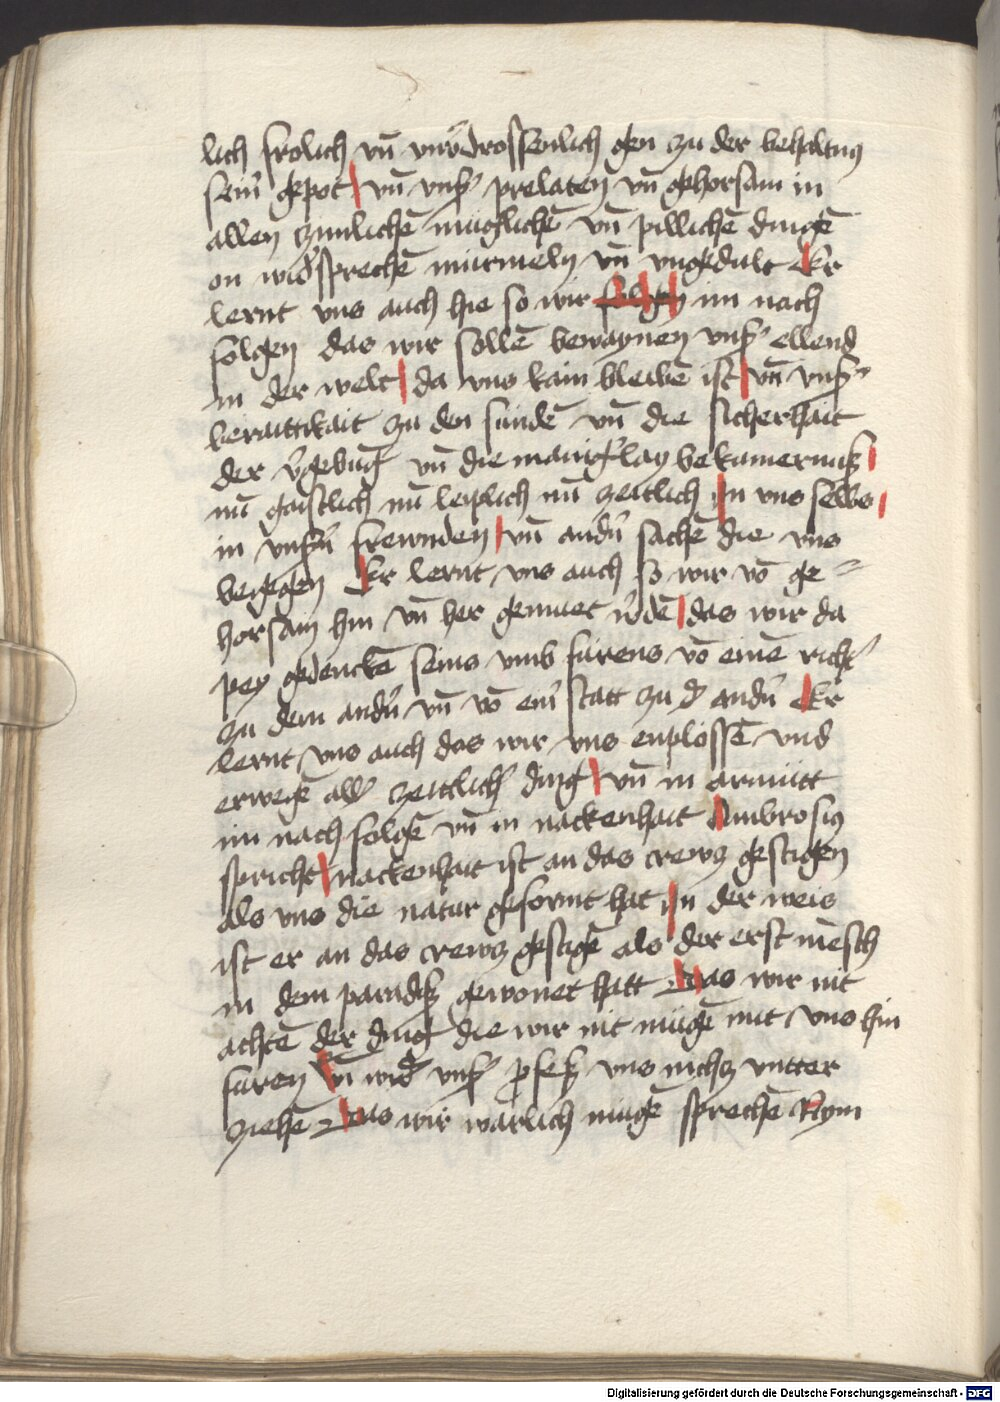 lich frolich vn̄ vnv̄drossenlich gen zu der behaltnus
sein̄ gepot vn̄ vnsˀ prelaten vn̄ gehorsam in
allen zimlichē muglichē vn̄ pillichē dingē
on widˀsprechē murmeln vn̄ vngedult Er
lernt vns auch hie so wir folgten im nach
folgen das wir sollē bewaynen vnsˀ ellend
in der welt da vns kain bleibē ist vn̄ vnsˀ
beraittikait zu den sundē vn̄ die sicherhait
der v̄gebūg vn̄ die manigˀlay bekumernuß
nū gaistlich nū leiplich nū zeitlich In vns selbs
in vnsˀn̄ frewnden vn̄ andˀn̄ sachē die vns
begegen Er lernt vns auch so wir vō ge=
horsam hin vn̄ her gemuet w̄dē das wir da
pey gedenckē seins vmb furens vō einē richtˀ
zu dem andˀn̄ vn̄ vō einˀ statt zu dˀ andˀn̄ Er
lernt vns auch das wir vns enplössē vnd
erwegē allˀ zeitlichˀ ding vn̄ in armütt
im nach folgē vn̄ in nackenhait Ambrosius
spricht nackenhait ist an das crewcz gestigen
als vns die natur geformt hat in der weis
ist er an das crewcz gestigē als der erst mēsch
in dem paradiß gewonet hatt Das wir nit
achtē der ding die wir nit mügē mit vns hin
furen vn̄ widˀ vnsˀ profeß vns nichcz vntter
ziehē Das wir warlich mügē sprechē Nym